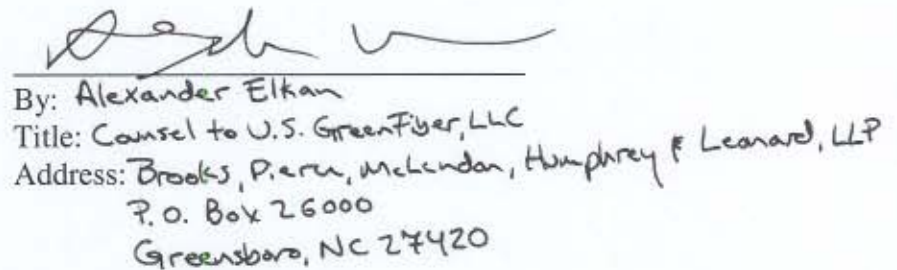 By: Alexander Elkan
Title: Counsel to U.S. GreenFiber, LLC
Address: Brooks, Pierce, McLendon, Humphrey & Leonard, LLP
P.O. Box 26000
Greensboro, NC 27420